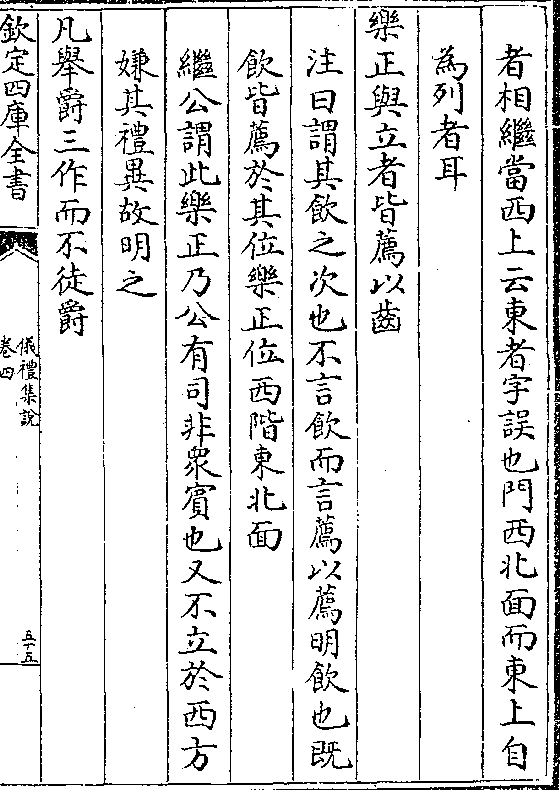 者相繼當西上云東者字誤也門西北面而東上自
為列者耳
樂正與立者皆薦以齒
注曰謂其飲之次也不言飲而言薦以薦明飲也既
飲皆薦於其位樂正位西階東北面
繼公謂此樂正乃公有司非衆賓也又不立於西方
嫌其禮異故明之
凡舉爵三作而不徒爵
欽定四庫全書
儀禮集說
卷四
五十五